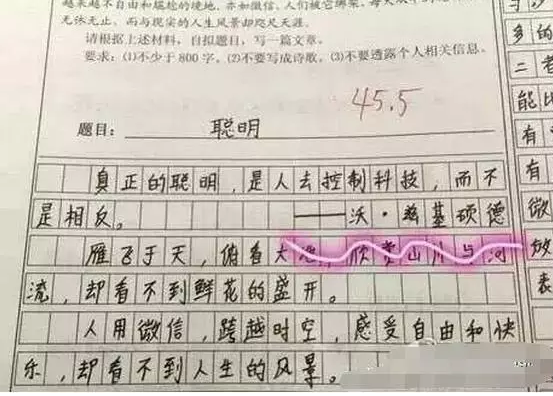 越来越不自由和尴尬的境地,亦如微信,人们被它绑架,每天
无休无止,而与现实的人生风景却咫尺天涯。
请根据上述材料,自拟题目,写一篇文章。
要求:(1)不少于800字,(2)不要写成诗歌,(3)不要透露个人相关信息。
45.5
题目: 聪明
真正的聪明,是人去控制科技,而不
是相反。 ——沃·兹基硕德
雁飞于天,俯看大地,欣赏山川与河
流,却看不到鲜花的盛开。
人用微信,跨越时空,感受自由和快
乐,却看不到人生的风景。
多的
二
能比
有
有
微
妙
表